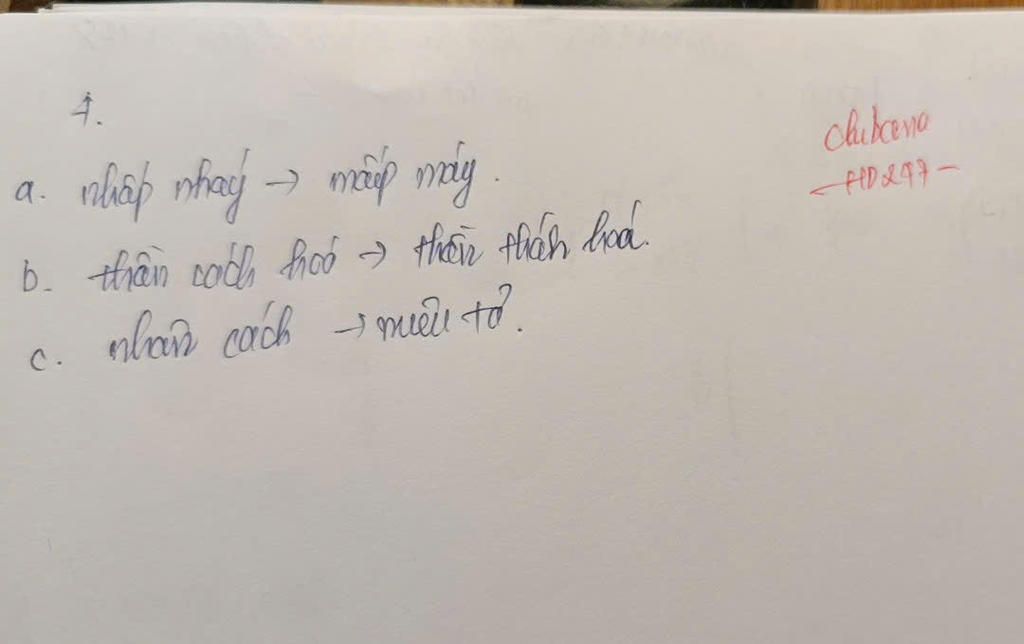 4.
chubcena
a. nhấp nháy → mấp máy.
HD247
b. thần cách hoá → thần thánh hoá.
c. nhân cách → miêu tả.